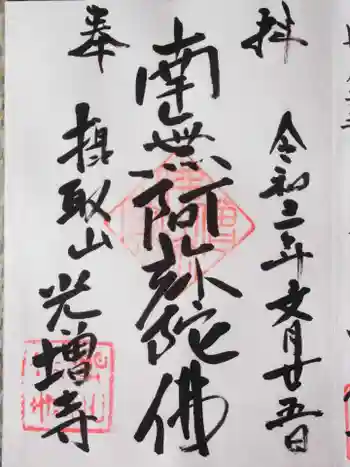 拝
令和三年文月廿五日
南無阿弥陀佛
奉
摂取山
光増寺